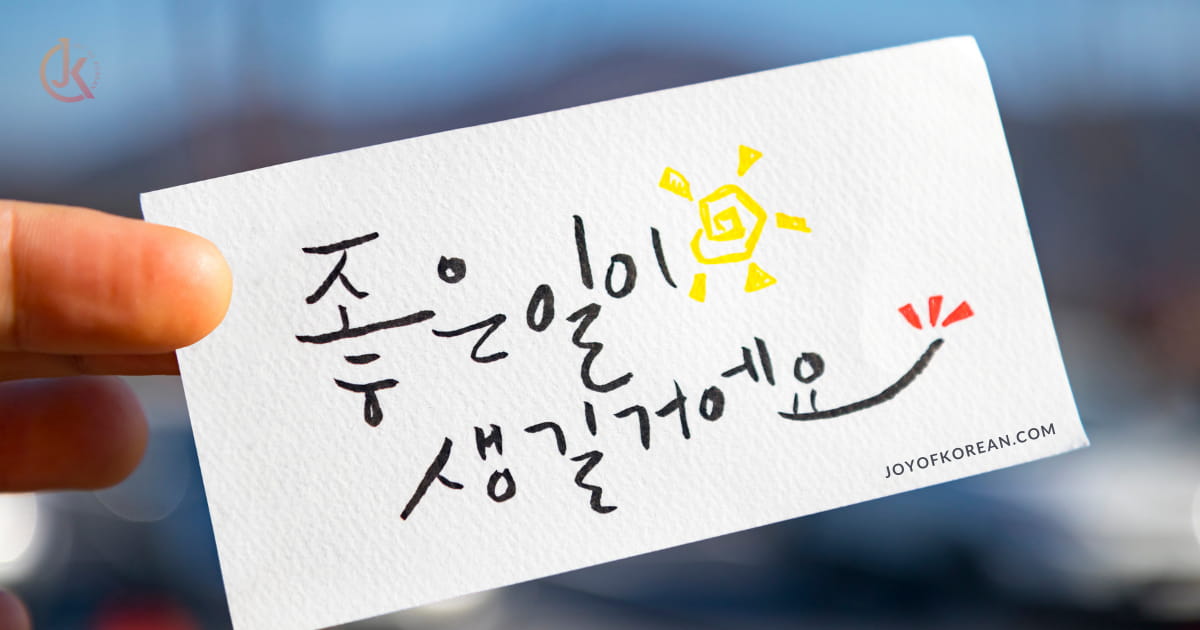 JK
좋은 일이
생길 거에요
JOYOFKOREAN.COM